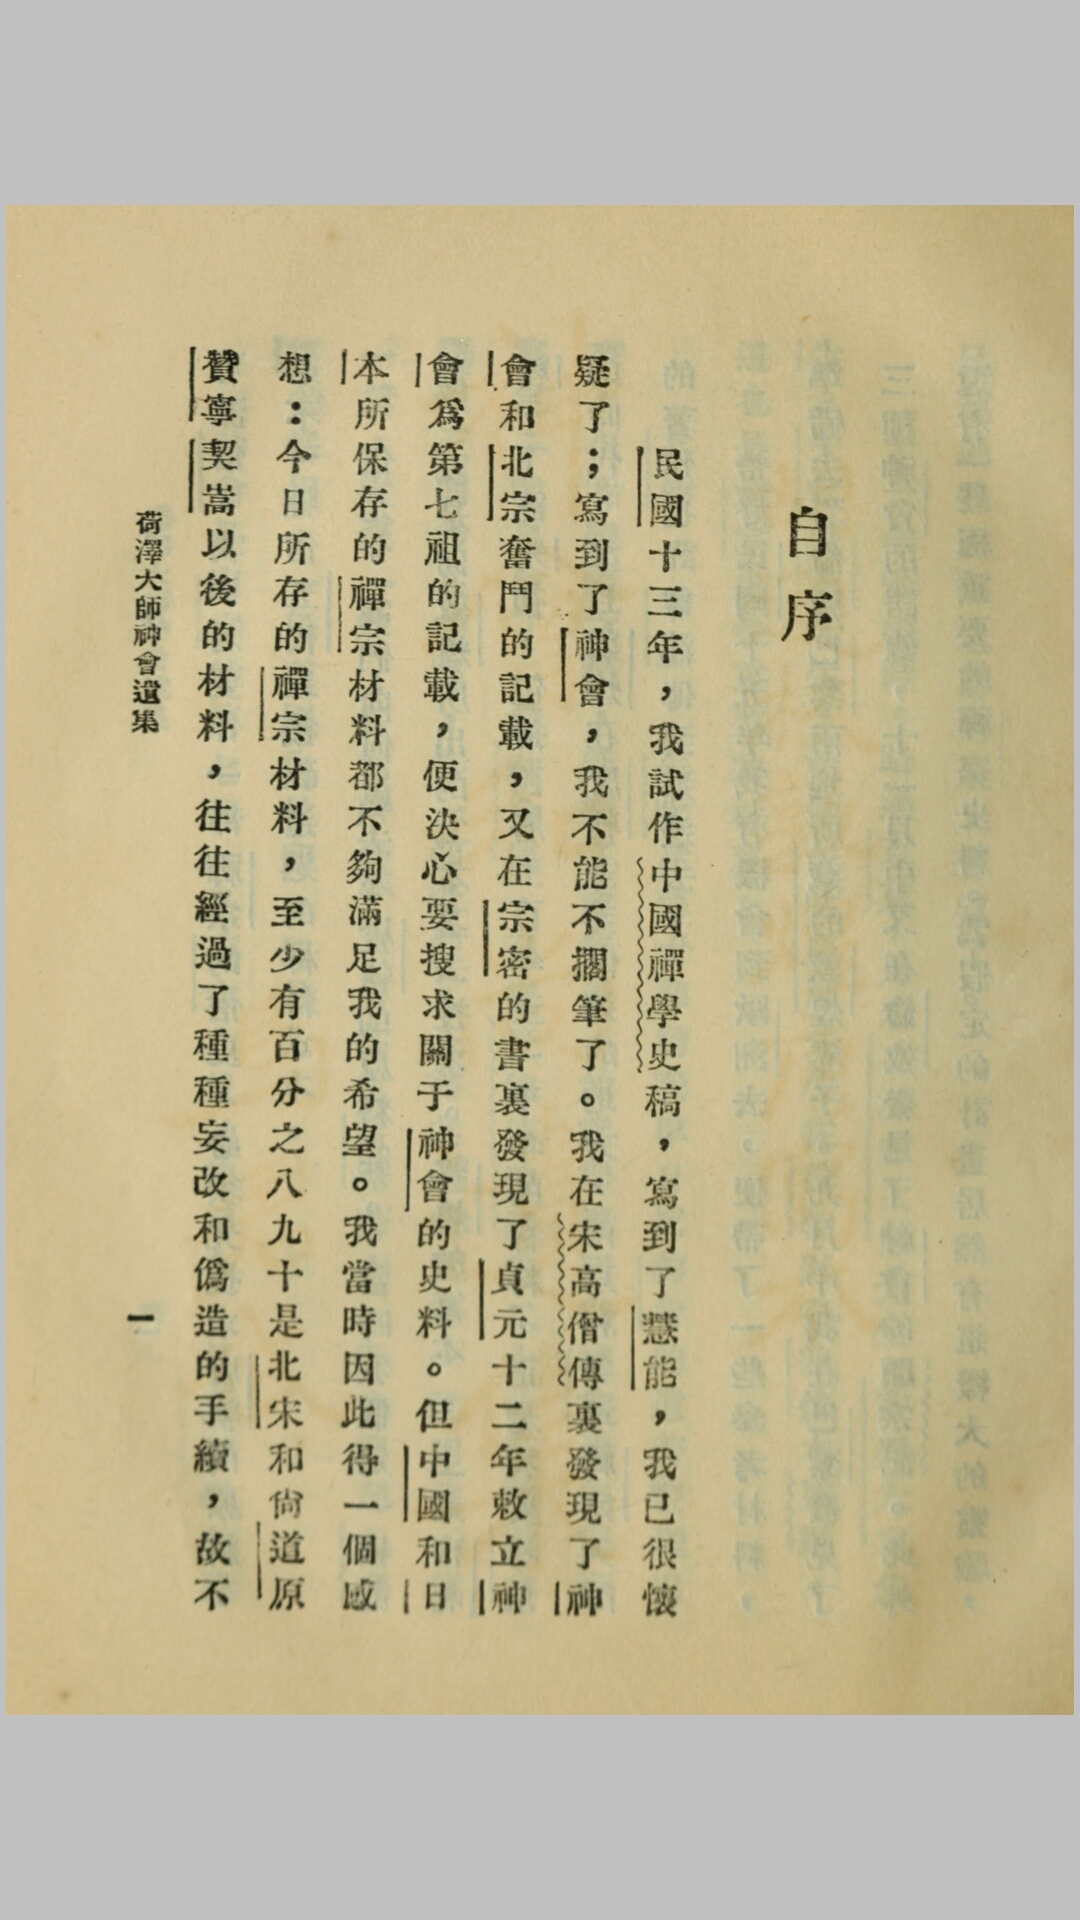 自序
民國十三年，我試作中國禪學史稿，寫到了慧能，我已很懷
疑了；寫到了神會，我不能不擱筆了。我在宋高僧傳裏發現了神
會和北宗奮鬥的記載，又在宗密的書裏發現了貞元十二年敕立神
會爲第七祖的記載，便決心要搜求關于神會的史料。但中國和日
本所保存的禪宗材料都不夠滿足我的希望。我當時因此得一個感
想：今日所存的禪宗材料，至少有百分之八九十是北宋和尙道原
贊寧契嵩以後的材料，往往經過了種種妄改和僞造的手續，故不
荷澤大師神會遺集
一